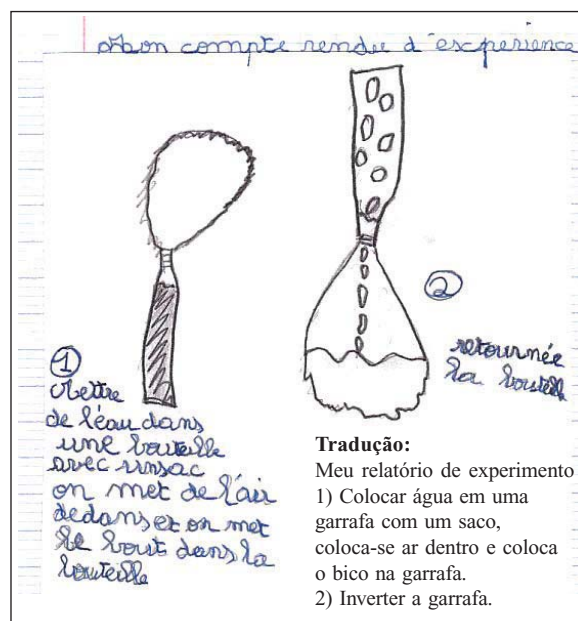 Mon compte rendu d'experience
②
retournée
la bouteille
①
Mettre
de l'éau dans
une bouteille
avec un sac
on met de l'air
dedans et on met
le bout dans la
bouteille
Tradução:
Meu relatório de experimento
1) Colocar água em uma
garrafa com um saco,
coloca-se ar dentro e coloca
o bico na garrafa.
2) Inverter a garrafa.